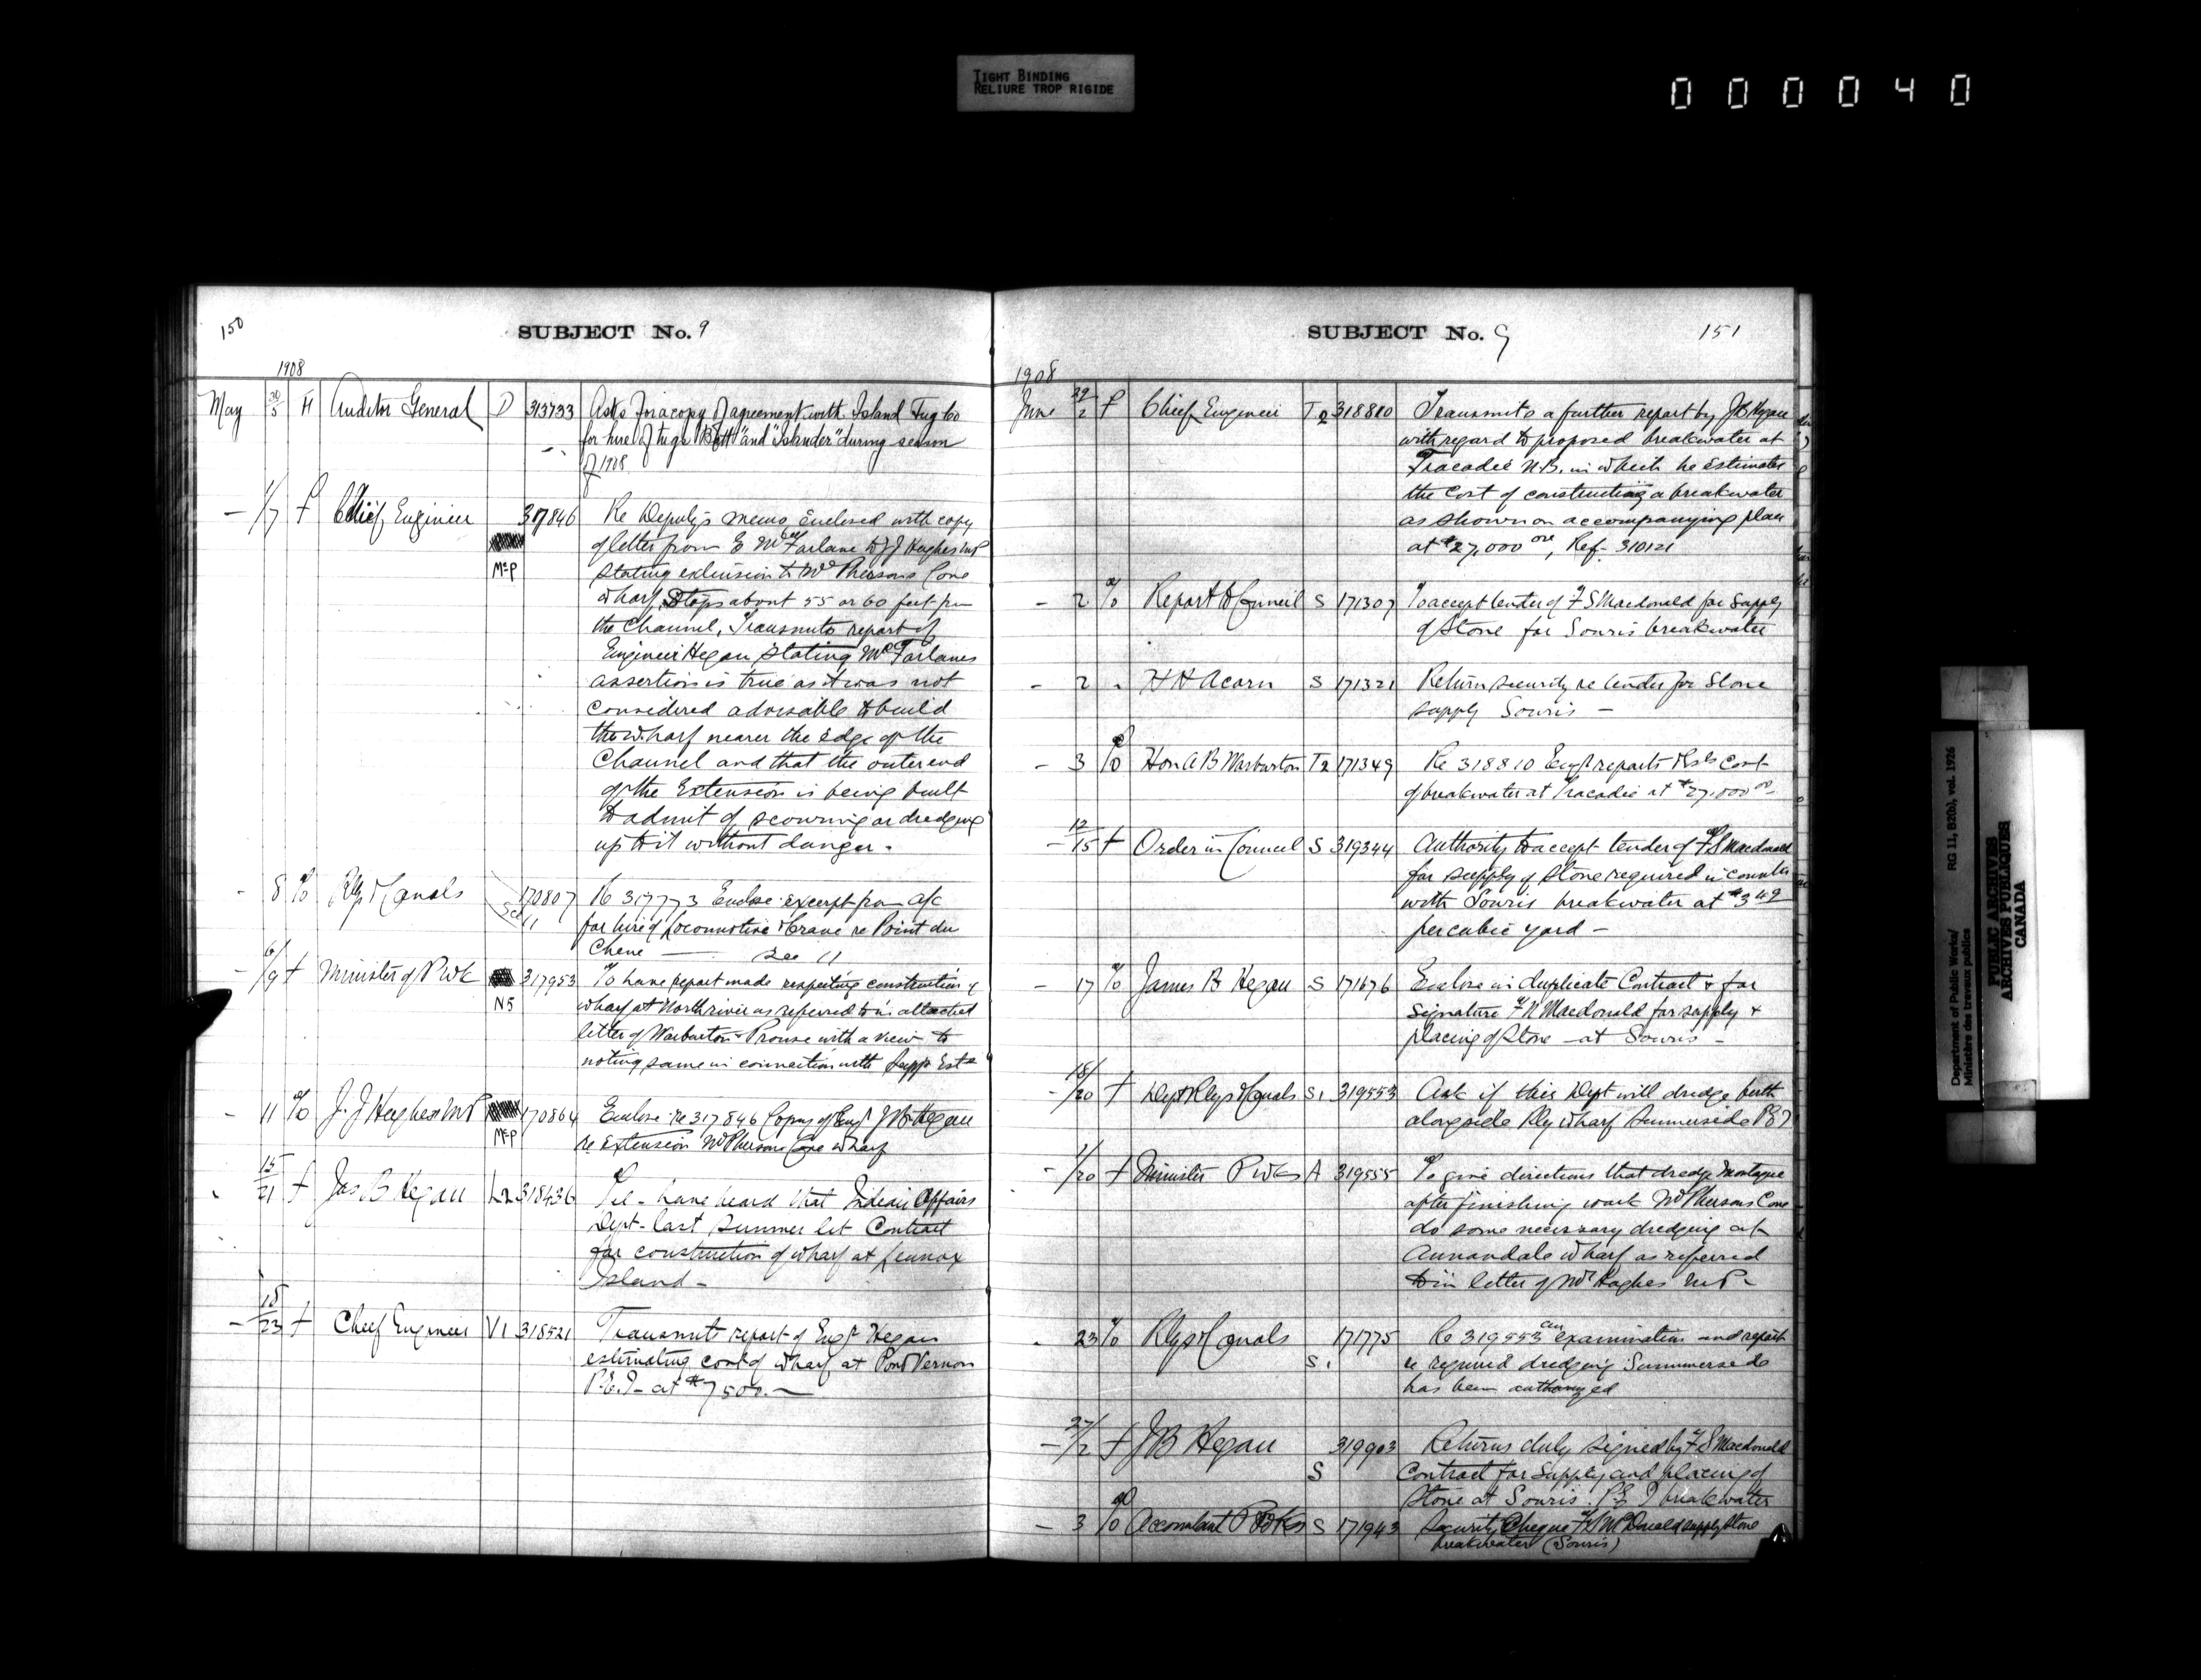 TIGHT BINDING
RELIURE TROP RIGIDE
000040
150
SUBJECT No. 9
1908
May 30/5 H Auditor General D 313733 Asks for a copy of agreement with Island Tug Co
for hire of tugs "Bott" and "Iskander" during season
of 1908
— 1/7 f Chief Engineer 317846 Re Deputy's memo enclosed with copy
of letter from E McFarlane to J J Hughes MP
McP stating extension to McPhersons Cove
wharf stops about 55 or 60 feet from
the Channel, Transmits report of
Engineer Hegan stating McFarlanes
assertion is true as it was not
considered advisable to build
the wharf nearer the edge of the
Channel and that the outer end
of the Extension is being built
to admit of scouring or dredging
up to it without danger.
- 8 % Rlys & Canals See 11 170807 Re 317773 Enclose excerpt from a/c
for hire of Locomotive & Crane re Point du
Chene — See 11
- 6/9 f Minister of P Wk 317953 To have report made respecting construction of
N5 wharf at North river as referred to in attached
letter of Warburton & Prowse with a view to
noting same in connection with Supp. Ests
- 11 % J. J Hughes MP 170864 Enclose re 317846 Copy of Engr J B Hegan
McP re Extension McPhersons Cove wharf
15/21 f Jas B Hegan L2 318436 Tel - have heard that Indian Affairs
Dept - last summer let Contract
for construction of wharf at Lennox
Island -
- 18/23 f Chief Engineer V1 318521 Transmits report of Engr Hegan
estimating cost of wharf at Pond Vernon
P.E.I - at $7500. —
SUBJECT No. 9
151
1908
June 29/2 f Chief Engineer T2 318810 Transmits a further report by J B Hegan
with regard to proposed breakwater at
Tracadie N.B. in which he estimates
the cost of constructing a breakwater
as shown on accompanying plan
at $27,000 00, Ref. 310121
- 2 % Report to Council S 171307 To accept tender of F S Macdonald for supply
of Stone for Souris breakwater
- 2 " H H Acorn S 171321 Return security re tender for Stone
supply Souris —
- 3 % Hon A B Warburton T2 171349 Re 318810 Engr reports cost
of breakwater at Tracadie at $27,000 00
- 12/15 f Order in Council S 319344 Authority to accept tender of F S Macdonald
for supply of stone required in connectn
with Souris breakwater at $3 49
per cubic yard —
- 17 % James B Hegan S 171676 Enclose in duplicate Contract & for
signature F S Macdonald for supply &
placing of Stone — at Souris -
- 18/20 f Dept Rlys & Canals S1 319553 Ask if this Dept will dredge berth
alongside Rly wharf Summerside PEI
- 1/20 f Minister P Wks A 319555 To give directions that dredge Montague
after finishing work McPhersons Cove
do some necessary dredging at
Annandale wharf as referred
to in letter of Mr Hughes M P -
- 23 % Rlys & Canals S1 171775 Re 319553 an examination and report
re required dredging Summerside
has been authorized
- 27/2 f J B Hegan S 319903 Returns duly signed by F S Macdonald
Contract for Supply and placing of
Stone at Souris P E I breakwater
- 3 % Accountant P Wks S 171943 Security Cheque F S McDonald supply Stone
breakwater (Souris)
Department of Public Works/
Ministère des travaux publics
RG 11, B2(b), vol. 1926
PUBLIC ARCHIVES
ARCHIVES PUBLIQUES
CANADA